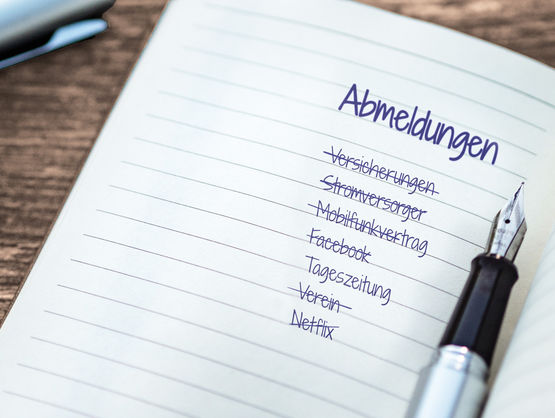 Abmeldungen
Versicherungen
Stromversorger
Mobilfunkvertrag
Facebook
Tageszeitung
Verein
Netflix